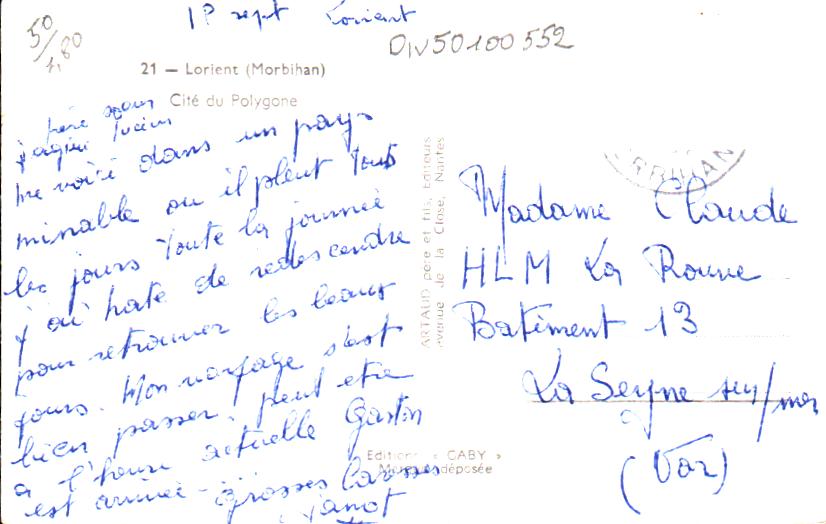 50/4,80
1? sept Lorient
DIV50100552
21 — Lorient (Morbihan)
Cité du Polygone
me voici dans un pays
minable ou il pleut tous
les jours toute la journée
j'ai hate de redescendre
pour retrouver les beaux
jours. Mon voyage s'est
bien passer, peut etre
a l'heure actuelle Gaston
est arrivée - grosses bises
Janot
ARTAUD père et fils, Editeurs
avenue de la Close, Nantes
Editions « CABY »
Marque déposée
MORBIHAN
Madame Claude
HLM La Rouve
Batiment 13
La Seyne sur/mer
(Var)